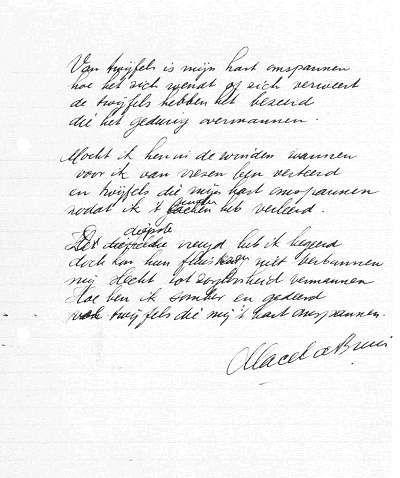 Van twijfels is mijn hart omspannen
hoe het zich wendt of zich verweert
de twijfels hebben het bezeerd
die het gedurig overmannen.
Mocht ik hen in de winden wannen
voor ik van vrezen ben verteerd
en twijfels die mijn hart omspannen
zodat ik 't heb verleerd.
diepste
vreugd heb ik begeerd
doch kan hun niet verbannen
mij slecht tot zorgloosheid vermannen
Hoe ben ik somber en gedeerd
twijfels die mij 't hart omspannen.